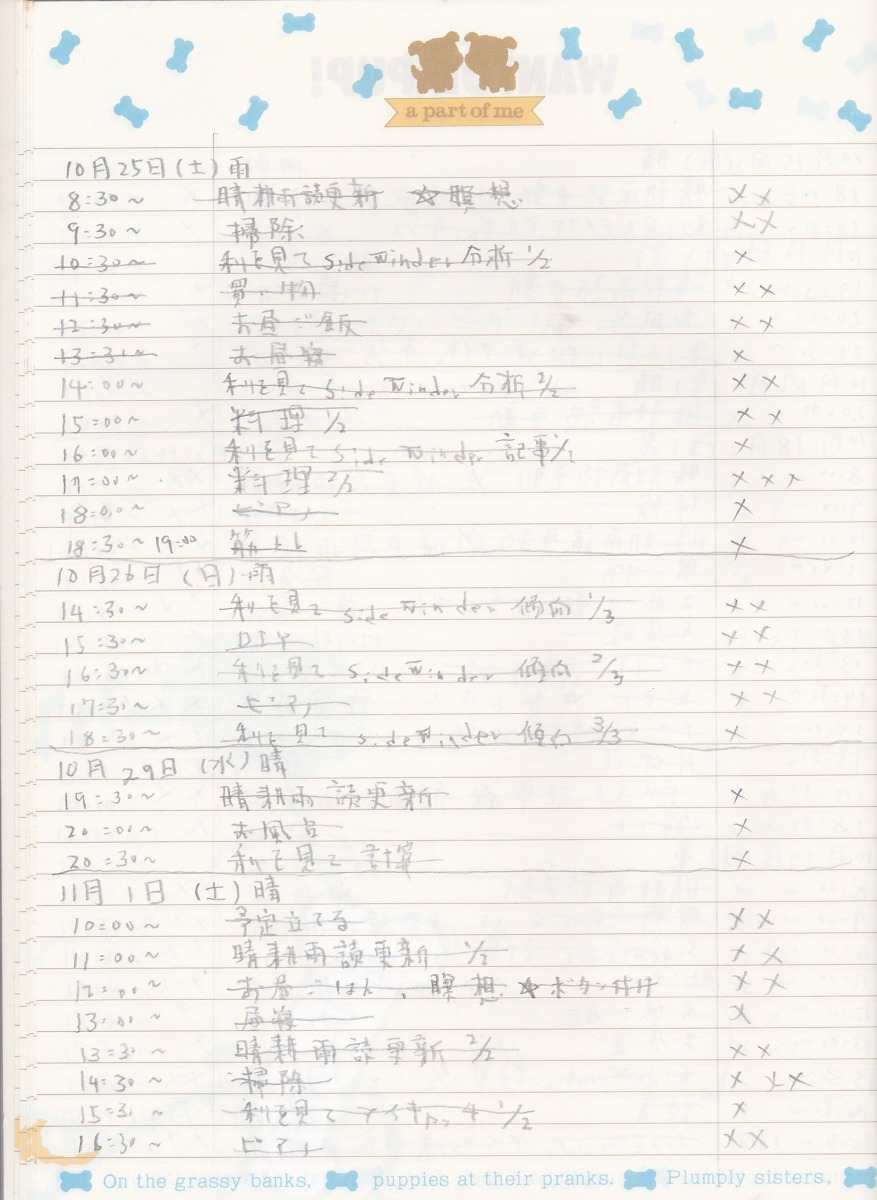 a part of me
10月25日(土)雨
8:30~ 晴耕雨読更新 ☆瞑想 ××
9:30~ 掃除 ××
10:30~ 利を見て SideWinder 分析 1/2 ×
11:30~ 買い物 ××
12:30~ お昼ご飯 ××
13:30~ お昼寝 ×
14:00~ 利を見て SideWinder 分析 2/2 ××
15:00~ 料理 1/2 ××
16:00~ 利を見て SideWinder 記事 1/1 ×
17:00~ 料理 2/2 ×××
18:00~ ピアノ ×
18:30~19:00 筋トレ ×
10月26日(日)雨
14:30~ 利を見て SideWinder 傾向 1/3 ××
15:30~ DIY ××
16:30~ 利を見て SideWinder 傾向 2/3 ××
17:30~ ピアノ ××
18:30~ 利を見て SideWinder 傾向 3/3 ×
10月29日(水)晴
19:30~ 晴耕雨読更新 ×
20:00~ お風呂 ×
20:30~ 利を見て 計算 ×
11月1日(土)晴
10:00~ 予定立てる ××
11:00~ 晴耕雨読更新 1/2 ××
12:00~ お昼ごはん、瞑想 ☆ボタン付け ××
13:00~ 昼寝 ×
13:30~ 晴耕雨読更新 2/2 ××
14:30~ 掃除 ×××
15:30~ 利を見て 1/2 ×
16:30~ ピアノ ××
On the grassy banks, puppies at their pranks. Plumply sisters,